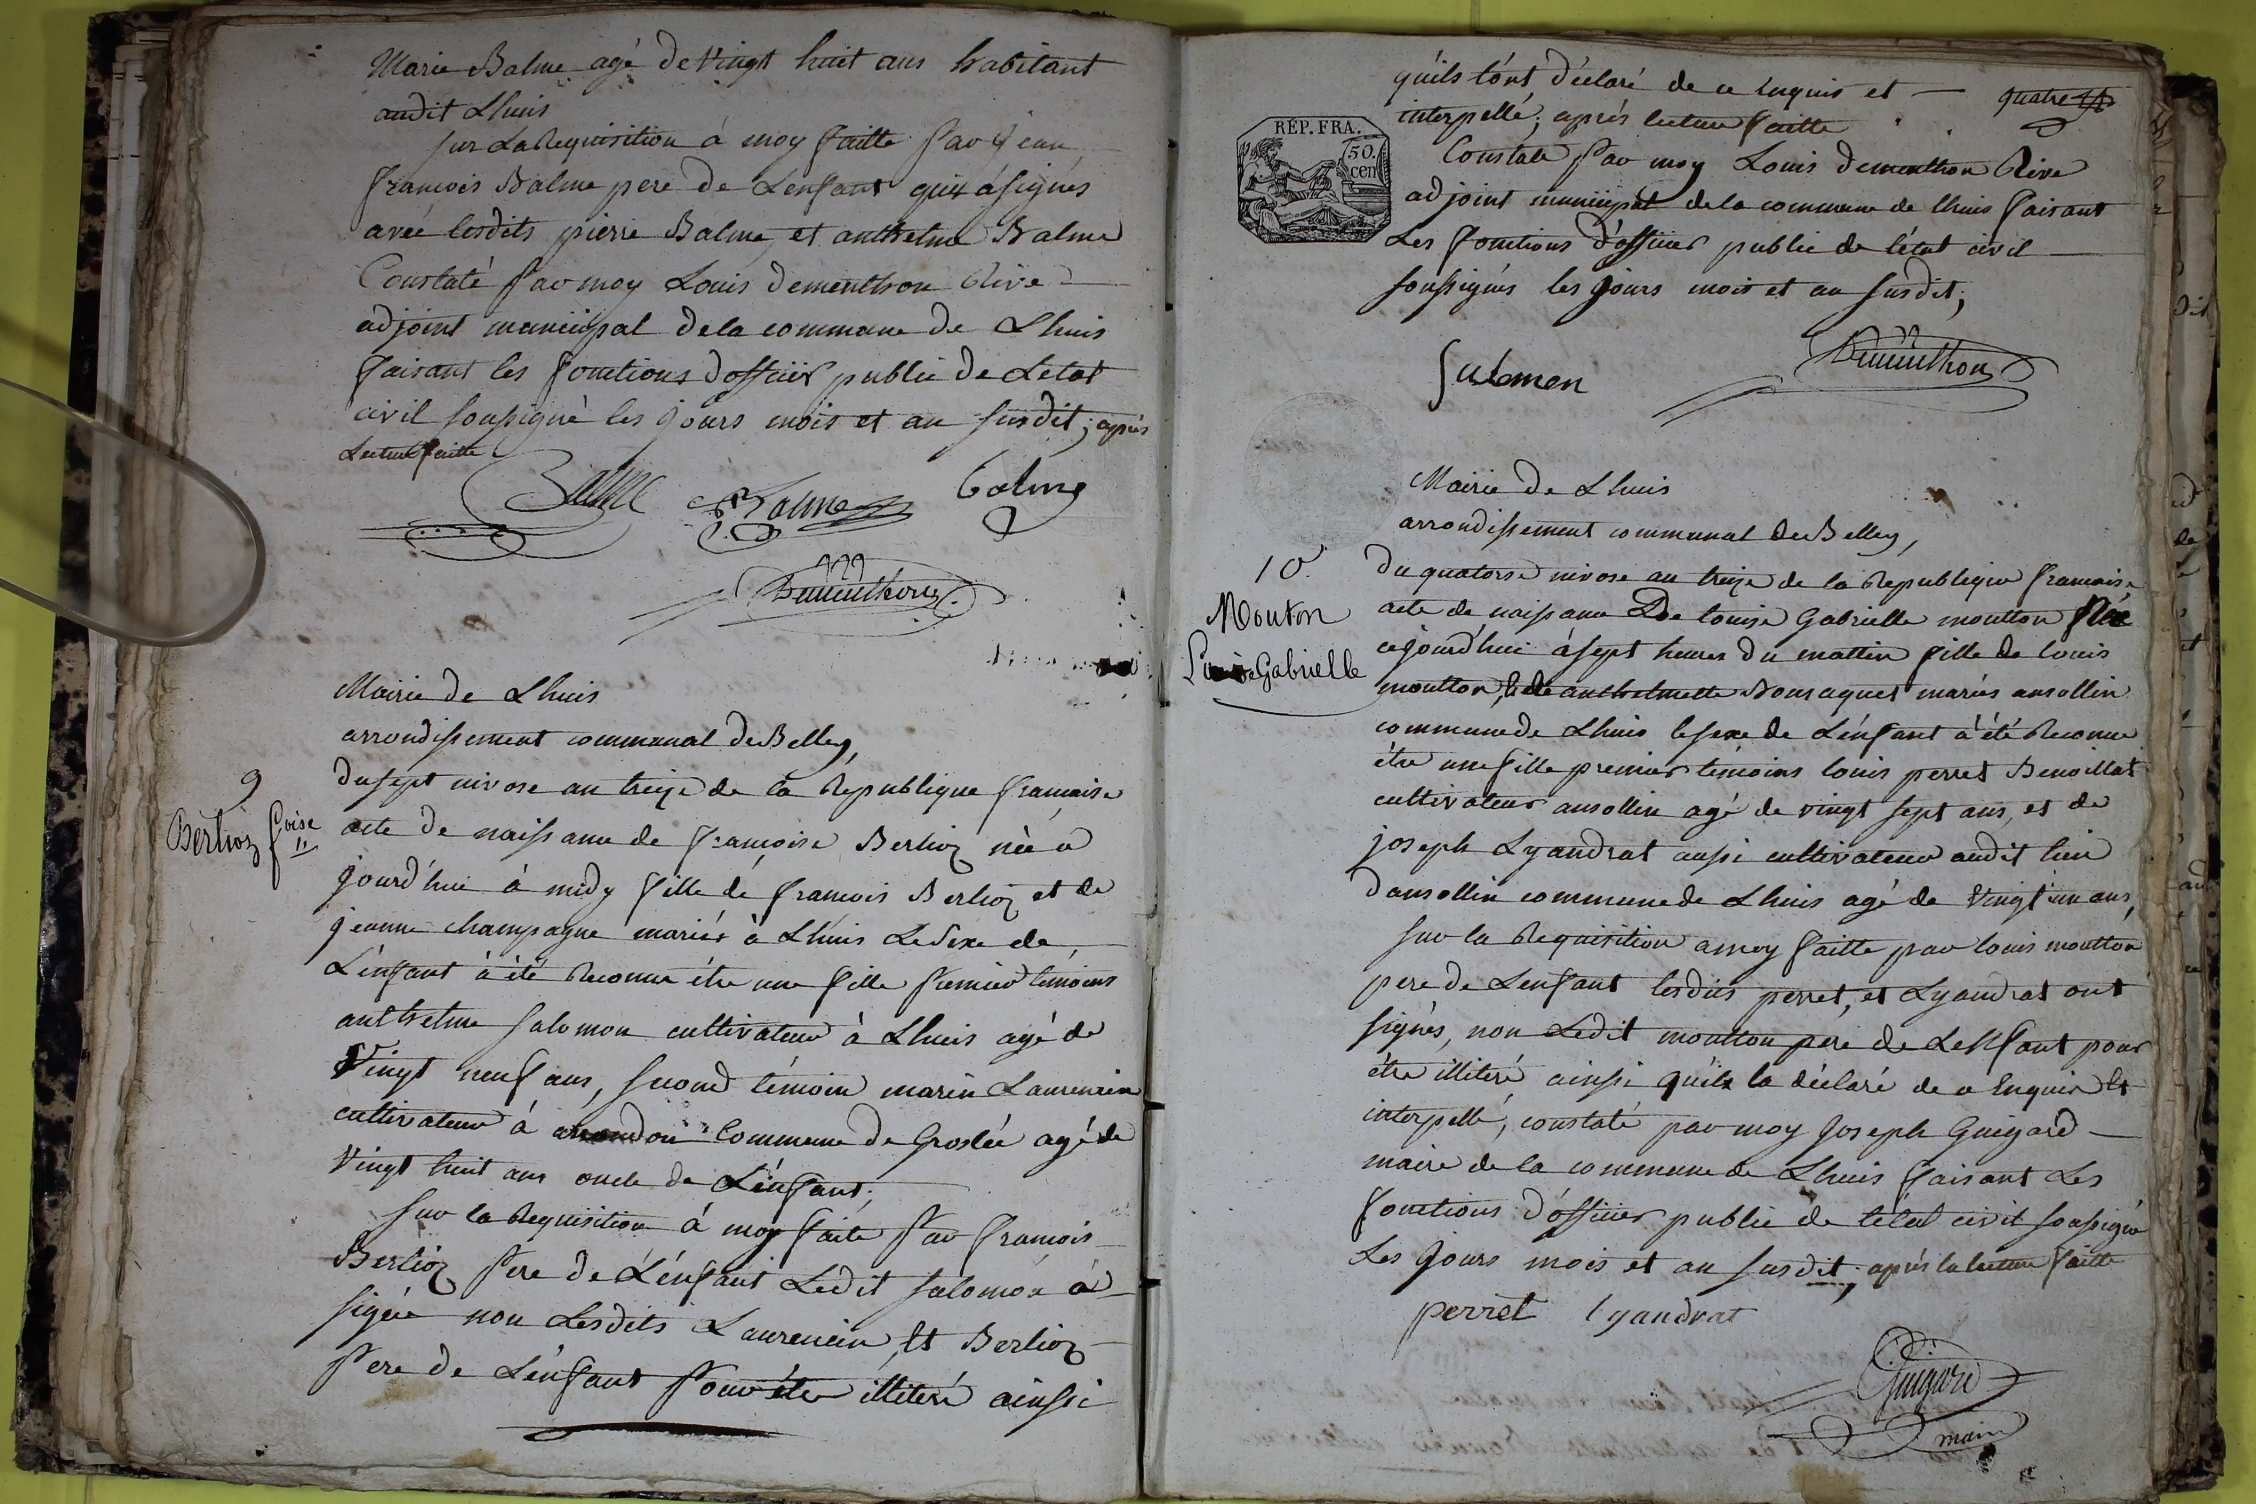 Marie Balme agé de Vingt huit ans habitant
audit Lhuis
sur La Requisition à moy faitte Par Jean
françois Balme pere de Lenfant qui à signés
avec lesdits pierre Balme et anthelme Balme
Constaté Par moy Louis dementhon Rive
adjoint municipal de la commune de Lhuis
faisant les fonctions d'officier public de Letat
civil soussigné les jours mois et an susdit; après
Lecture faitte
Balme Balme balme
Dementhon
Mairie de Lhuis
arrondissement communal de Belley,
9
Berlioz foise
du sept nivose an treize de la Republique francaise
acte de naissance de francoise Berlioz née a
jourd'hui à midy fille de francois Berlioz et de
jeanne champagne mariés à Lhuis Le Sexe de
L'enfant à été Reconnu étre une fille Premier témoins
anthelme Salomon cultivateur à Lhuis agé de
Vingt neuf ans, second témoin marin Laurencin
cultivateur à Commune de Groslée agé de
Vingt huit ans oncle de L'enfant;
sur la Requisition à moy faite Par francois
Berlioz Pere de L'énfant Ledit Salomon à
signé non Lesdits Laurencin et Berlioz
Pere de L'énfant Pour étre illiteré ainssi
qu'ils l'ont déclaré de ce enquis et
interpellé; après lecture faitte
quatre
RÉP. FRA.
50.
cen
Constaté Par moy Louis dementhon Rive
adjoint municipal de la commune de lhuis faisant
Les fonctions d'officier public de l'état civil
soussignés les jours mois et an susdit;
Dementhon
Salomon
Mairie de Lhuis
arrondissement communal de Belley,
10
Mouton
Gabrielle
du quatorse nivose an treize de la Republique francaise
acte de naissance De louise Gabrielle moutton Née
cejourd'hui à sept heures du mattin fille de louis
moutton, et de anthelmette Bonsaquet mariés ansollin
commune de Lhuis le sexe de L'énfant à été Reconnu
étre une fille premier témoins louis perret Benoillat
cultivateur ansollin agé de vingt sept ans, et de
joseph Lyandrat aussi cultivateur audit lieu
dansollin commune de Lhuis agé de Vingt un ans,
sur la Requisition a moy faitte par louis moutton
pere de Lenfant lesdits perret, et Lyandrat ont
signés, non Ledit moutton pere de Lenfant pour
étre illiteré ainssi qu'il la déclaré de ce Enquis et
interpellé, constaté par moy Joseph Guigard
maire de la commune de Lhuis faisant Les
fonctions d'officier public de létat civil soussigné
Les jours mois et an susdit; après la lecture faitte
perret lyandrat
Guigard
maire